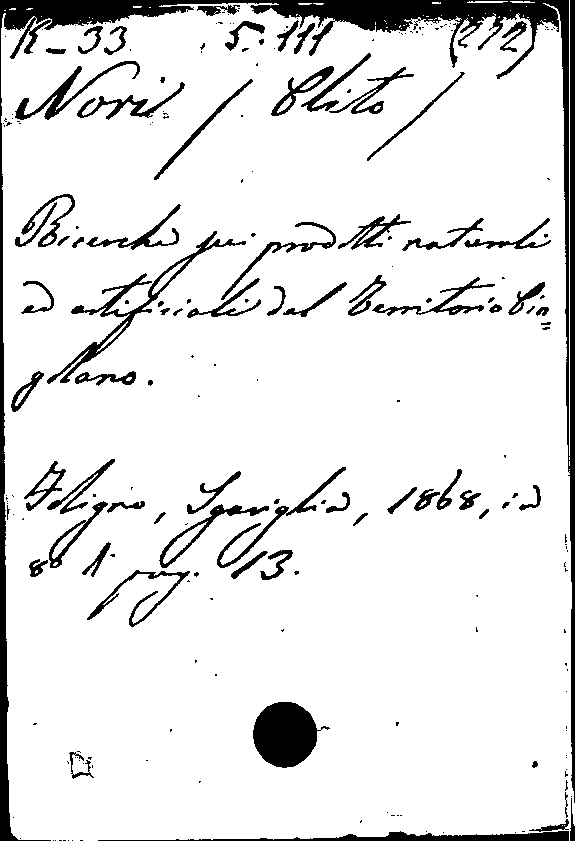 K-33 5.111 (272)
Nori / Clito /
Ricerche sui prodotti naturali
ed artificiali del Territorio Cin=
golano.
Foligno, Sgariglia, 1868, in
8° pag. 13.